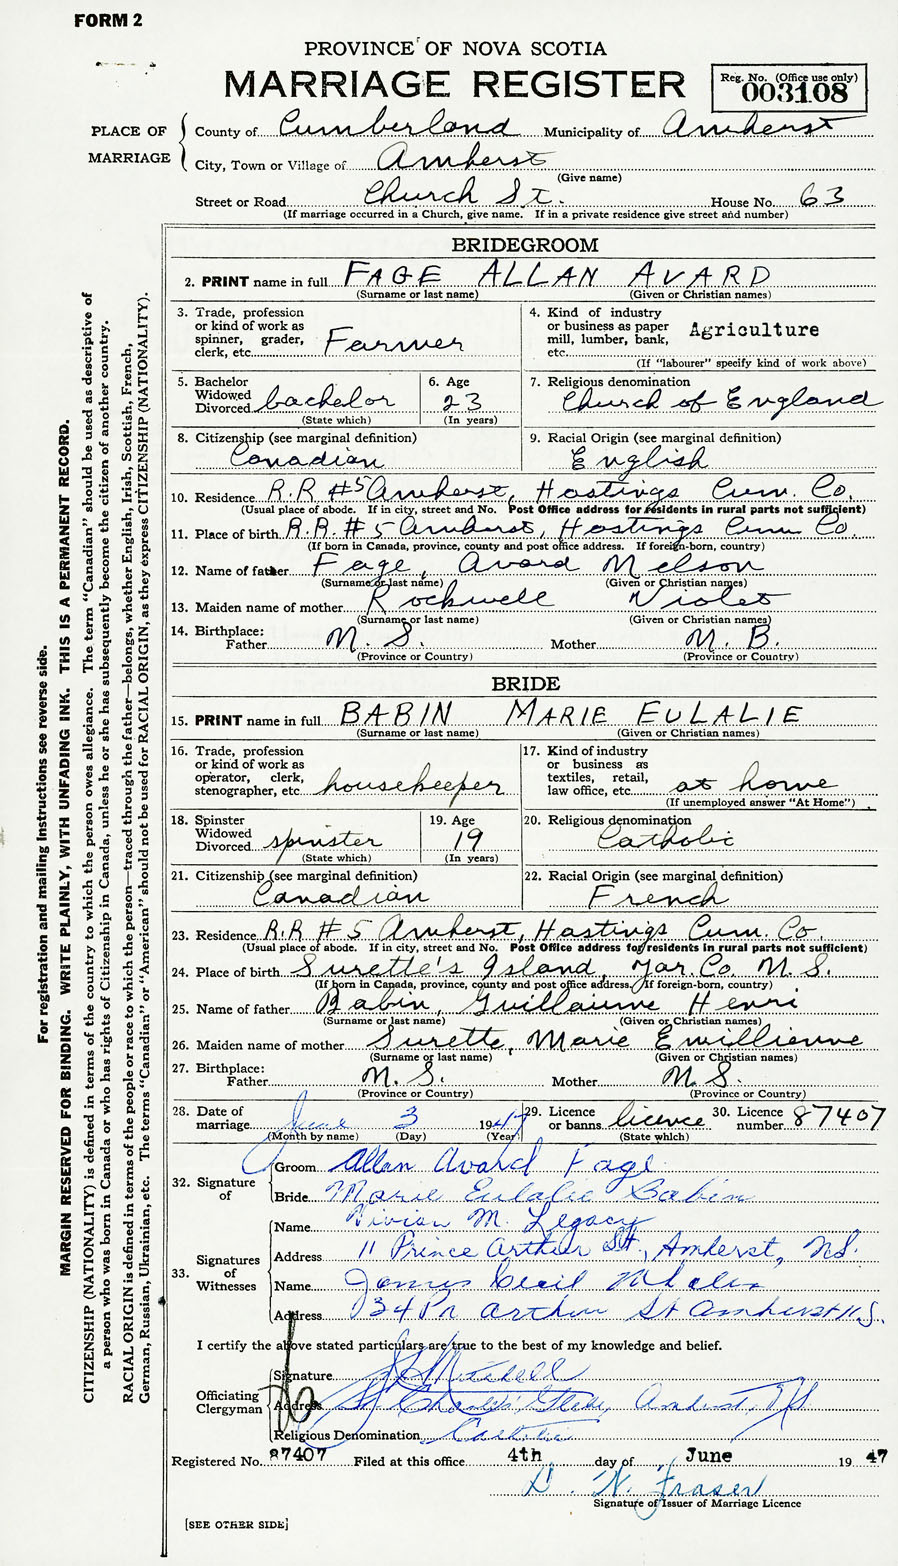 FORM 2
PROVINCE OF NOVA SCOTIA
MARRIAGE REGISTER
Reg. No. (Office use only)
003108
PLACE OF MARRIAGE
County of Cumberland Municipality of Amherst
City, Town or Village of Amherst
(Give name)
Street or Road Church St. House No. 63
(If marriage occurred in a Church, give name. If in a private residence give street and number)
BRIDEGROOM
2. PRINT name in full FAGE ALLAN AVARD
(Surname or last name) (Given or Christian names)
3. Trade, profession or kind of work as spinner, grader, clerk, etc. Farmer
4. Kind of industry or business as paper mill, lumber, bank, etc. Agriculture
(If "labourer" specify kind of work above)
5. Bachelor Widowed Divorced bachelor
(State which)
6. Age 23
(In years)
7. Religious denomination
Church of England
8. Citizenship (see marginal definition)
Canadian
9. Racial Origin (see marginal definition)
English
10. Residence R.R #5 Amherst, Hastings Cum. Co.
(Usual place of abode. If in city, street and No. Post Office address for residents in rural parts not sufficient)
11. Place of birth R.R. #5 Amherst, Hastings Cum Co
(If born in Canada, province, county and post office address. If foreign-born, country)
12. Name of father Fage, Avard Nelson
(Surname or last name) (Given or Christian names)
13. Maiden name of mother Rockwell Violet
(Surname or last name) (Given or Christian names)
14. Birthplace:
Father N. S. Mother N. B.
(Province or Country) (Province or Country)
BRIDE
15. PRINT name in full BABIN MARIE EULALIE
(Surname or last name) (Given or Christian names)
16. Trade, profession or kind of work as operator, clerk, stenographer, etc. housekeeper
17. Kind of industry or business as textiles, retail, law office, etc. at home
(If unemployed answer "At Home")
18. Spinster Widowed Divorced spinster
(State which)
19. Age 19
(In years)
20. Religious denomination
Catholic
21. Citizenship (see marginal definition)
Canadian
22. Racial Origin (see marginal definition)
French
23. Residence R.R #5 Amherst, Hastings Cum. Co.
(Usual place of abode. If in city, street and No. Post Office address for residents in rural parts not sufficient)
24. Place of birth Surette's Island, Yar. Co. N. S.
(If born in Canada, province, county and post office address. If foreign-born, country)
25. Name of father Babin, Guillaume Henri
(Surname or last name) (Given or Christian names)
26. Maiden name of mother Surette, Marie Emillienne
(Surname or last name) (Given or Christian names)
27. Birthplace:
Father N. S. Mother N. S.
(Province or Country) (Province or Country)
28. Date of marriage June 3 1947
(Month by name) (Day) (Year)
29. Licence or banns licence
(State which)
30. Licence number 87407
32. Signature of
Groom Allan Avard Fage
Bride Marie Eulalie Babin
33. Signatures of Witnesses
Name Vivian M. Legacy
Address 11 Prince Arthur St., Amherst, N.S.
Name James Cecil
Address 134 Pr Arthur St Amherst N.S.
I certify the above stated particulars are true to the best of my knowledge and belief.
Officiating Clergyman
Signature
Address St Charles' Glebe, Amherst, N.S
Religious Denomination Catholic
Registered No. 87407 Filed at this office 4th day of June 19 47
D. N. Fraser
Signature of Issuer of Marriage Licence
[SEE OTHER SIDE]
For registration and mailing instructions see reverse side.
MARGIN RESERVED FOR BINDING. WRITE PLAINLY, WITH UNFADING INK. THIS IS A PERMANENT RECORD.
CITIZENSHIP (NATIONALITY) is defined in terms of the country to which the person owes allegiance. The term "Canadian" should be used as descriptive of
a person who was born in Canada or who has rights of Citizenship in Canada, unless he or she has subsequently become the citizen of another country.
RACIAL ORIGIN is defined in terms of the people or race to which the person—traced through the father—belongs, whether English, Irish, Scottish, French,
German, Russian, Ukrainian, etc. The terms "Canadian" or "American" should not be used for RACIAL ORIGIN, as they express CITIZENSHIP (NATIONALITY).